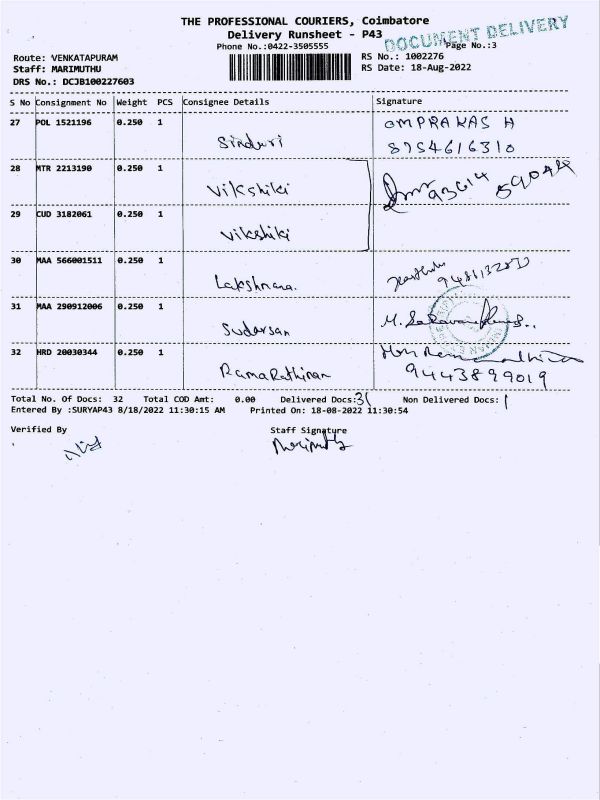 THE PROFESSIONAL COURIERS, Coimbatore
Delivery Runsheet - P43
DOCUMENT DELIVERY
Phone No.:0422-3505555
Page No.:3
Route: VENKATAPURAM
RS No.: 1002276
Staff: MARIMUTHU
RS Date: 18-Aug-2022
DRS No.: DCJB100227603
S No Consignment No Weight PCS Consignee Details Signature
27 POL 1521196 0.250 1 Sinduri OMPRAKAS H
8954616310
28 MTR 2213190 0.250 1 Vikshiki
29 CUD 3182061 0.250 1 Vikshiki
30 MAA 566001511 0.250 1 Lakshmana.
31 MAA 290912006 0.250 1 Sudarsan
32 HRD 20030344 0.250 1 Rama Rathinam
9443899019
Total No. Of Docs: 32 Total COD Amt: 0.00 Delivered Docs:31 Non Delivered Docs: 1
Entered By :SURYAP43 8/18/2022 11:30:15 AM Printed On: 18-08-2022 11:30:54
Verified By Staff Signature